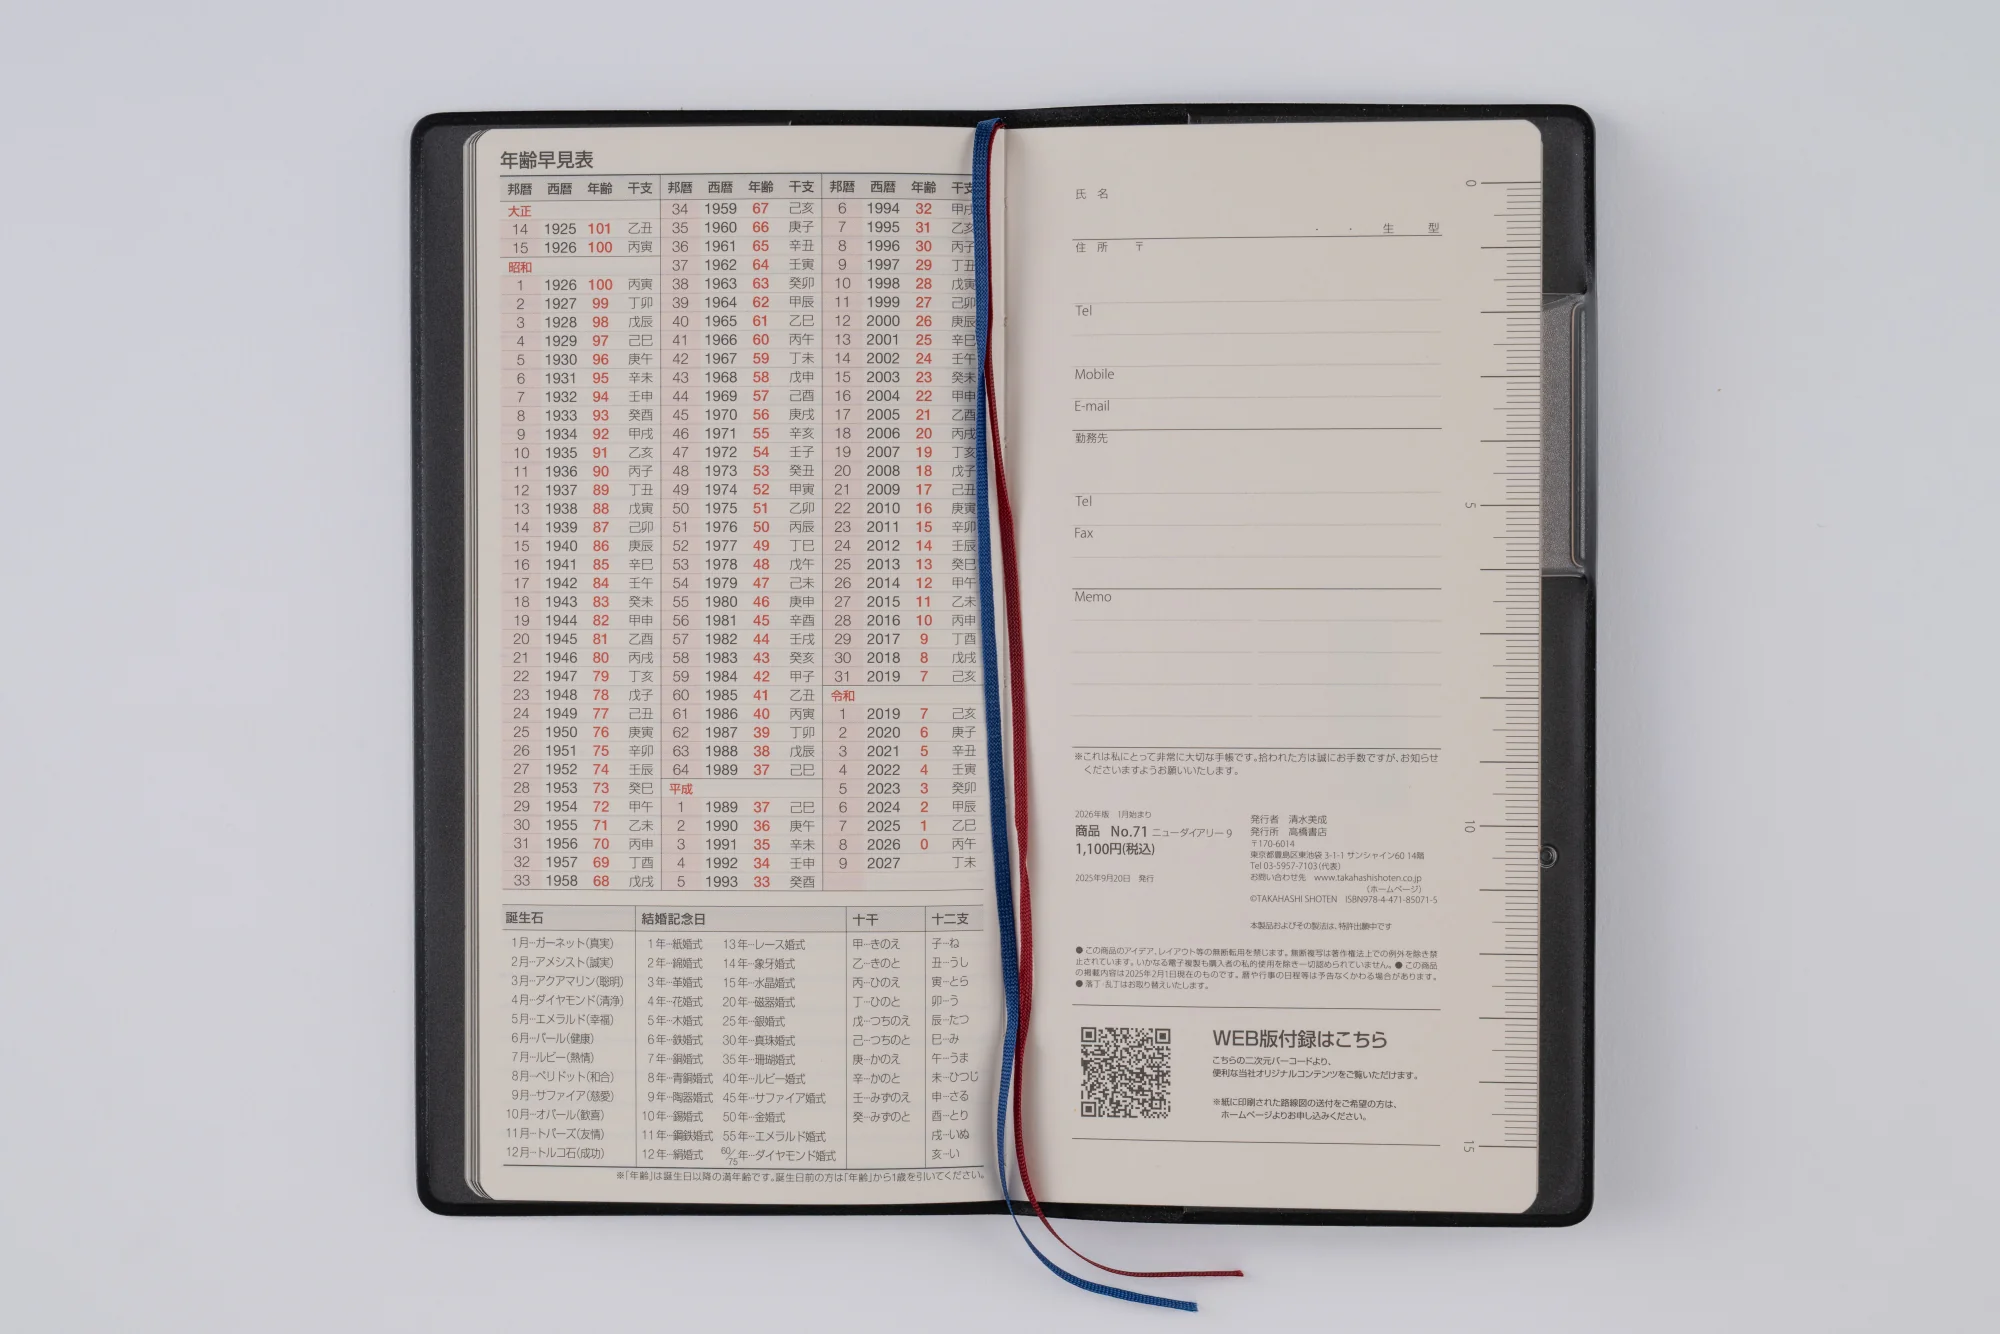 年齢早見表
邦暦 西暦 年齢 干支 邦暦 西暦 年齢 干支 邦暦 西暦 年齢 干支
大正 34 1959 67 己亥 6 1994 32 甲戌
14 1925 101 乙丑 35 1960 66 庚子 7 1995 31 乙亥
15 1926 100 丙寅 36 1961 65 辛丑 8 1996 30 丙子
昭和 37 1962 64 壬寅 9 1997 29 丁丑
1 1926 100 丙寅 38 1963 63 癸卯 10 1998 28 戊寅
2 1927 99 丁卯 39 1964 62 甲辰 11 1999 27 己卯
3 1928 98 戊辰 40 1965 61 乙巳 12 2000 26 庚辰
4 1929 97 己巳 41 1966 60 丙午 13 2001 25 辛巳
5 1930 96 庚午 42 1967 59 丁未 14 2002 24 壬午
6 1931 95 辛未 43 1968 58 戊申 15 2003 23 癸未
7 1932 94 壬申 44 1969 57 己酉 16 2004 22 甲申
8 1933 93 癸酉 45 1970 56 庚戌 17 2005 21 乙酉
9 1934 92 甲戌 46 1971 55 辛亥 18 2006 20 丙戌
10 1935 91 乙亥 47 1972 54 壬子 19 2007 19 丁亥
11 1936 90 丙子 48 1973 53 癸丑 20 2008 18 戊子
12 1937 89 丁丑 49 1974 52 甲寅 21 2009 17 己丑
13 1938 88 戊寅 50 1975 51 乙卯 22 2010 16 庚寅
14 1939 87 己卯 51 1976 50 丙辰 23 2011 15 辛卯
15 1940 86 庚辰 52 1977 49 丁巳 24 2012 14 壬辰
16 1941 85 辛巳 53 1978 48 戊午 25 2013 13 癸巳
17 1942 84 壬午 54 1979 47 己未 26 2014 12 甲午
18 1943 83 癸未 55 1980 46 庚申 27 2015 11 乙未
19 1944 82 甲申 56 1981 45 辛酉 28 2016 10 丙申
20 1945 81 乙酉 57 1982 44 壬戌 29 2017 9 丁酉
21 1946 80 丙戌 58 1983 43 癸亥 30 2018 8 戊戌
22 1947 79 丁亥 59 1984 42 甲子 31 2019 7 己亥
23 1948 78 戊子 60 1985 41 乙丑 令和
24 1949 77 己丑 61 1986 40 丙寅 1 2019 7 己亥
25 1950 76 庚寅 62 1987 39 丁卯 2 2020 6 庚子
26 1951 75 辛卯 63 1988 38 戊辰 3 2021 5 辛丑
27 1952 74 壬辰 64 1989 37 己巳 4 2022 4 壬寅
28 1953 73 癸巳 平成 5 2023 3 癸卯
29 1954 72 甲午 1 1989 37 己巳 6 2024 2 甲辰
30 1955 71 乙未 2 1990 36 庚午 7 2025 1 乙巳
31 1956 70 丙申 3 1991 35 辛未 8 2026 0 丙午
32 1957 69 丁酉 4 1992 34 壬申 9 2027 丁未
33 1958 68 戊戌 5 1993 33 癸酉
誕生石 結婚記念日 十干 十二支
1月…ガーネット(真実) 1年…紙婚式 13年…レース婚式 甲…きのえ 子…ね
2月…アメシスト(誠実) 2年…綿婚式 14年…象牙婚式 乙…きのと 丑…うし
3月…アクアマリン(聡明) 3年…革婚式 15年…水晶婚式 丙…ひのえ 寅…とら
4月…ダイヤモンド(清浄) 4年…花婚式 20年…磁器婚式 丁…ひのと 卯…う
5月…エメラルド(幸福) 5年…木婚式 25年…銀婚式 戊…つちのえ 辰…たつ
6月…パール(健康) 6年…鉄婚式 30年…真珠婚式 己…つちのと 巳…み
7月…ルビー(熱情) 7年…銅婚式 35年…珊瑚婚式 庚…かのえ 午…うま
8月…ペリドット(和合) 8年…青銅婚式 40年…ルビー婚式 辛…かのと 未…ひつじ
9月…サファイア(慈愛) 9年…陶器婚式 45年…サファイア婚式 壬…みずのえ 申…さる
10月…オパール(歓喜) 10年…錫婚式 50年…金婚式 癸…みずのと 酉…とり
11月…トパーズ(友情) 11年…鋼鉄婚式 55年…エメラルド婚式 戌…いぬ
12月…トルコ石(成功) 12年…絹婚式 60/75年…ダイヤモンド婚式 亥…い
※「年齢」は誕生日以降の満年齢です。誕生日前の方は「年齢」から1歳を引いてください。
氏 名
・ ・ 生 型
住 所 〒
Tel
Mobile
E-mail
勤務先
Tel
Fax
Memo
※これは私にとって非常に大切な手帳です。拾われた方は誠にお手数ですが、お知らせ
くださいますようお願いいたします。
2026年版 1月始まり
商品 No.71 ニューダイアリー 9
1,100円(税込)
2025年9月20日 発行
発行者 清水美成
発行所 高橋書店
〒170-6014
東京都豊島区東池袋 3-1-1 サンシャイン60 14階
Tel 03-5957-7103(代表)
お問い合わせ先 www.takahashishoten.co.jp
(ホームページ)
©TAKAHASHI SHOTEN ISBN978-4-471-85071-5
本製品およびその製法は、特許出願中です
●この商品のアイデア、レイアウト等の無断転用を禁じます。無断複写は著作権法上での例外を除き禁
止されています。いかなる電子複製も購入者の私的使用を除き一切認められていません。●この商品
の掲載内容は2025年2月1日現在のものです。暦や行事の日程等は予告なくかわる場合があります。
●落丁・乱丁はお取り替えいたします。
WEB版付録はこちら
こちらの二次元バーコードより、
便利な当社オリジナルコンテンツをご覧いただけます。
※紙に印刷された路線図の送付をご希望の方は、
ホームページよりお申し込みください。
0
5
10
15